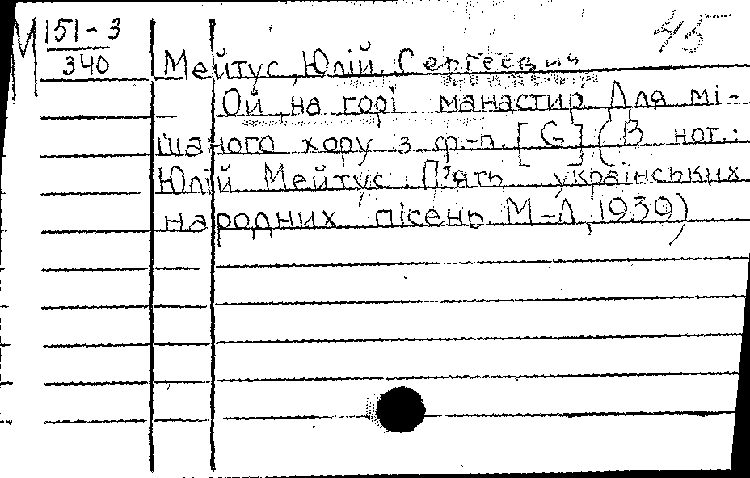 М 151-3 45
340 Мейтус, Юлій Сергеевич
Ой на горі манастир. Для мі-
шаного хору з ф.-п. [G] (В нот.:
Юлій Мейтус. П'ять українських
народних пісень. М-Л, 1939)